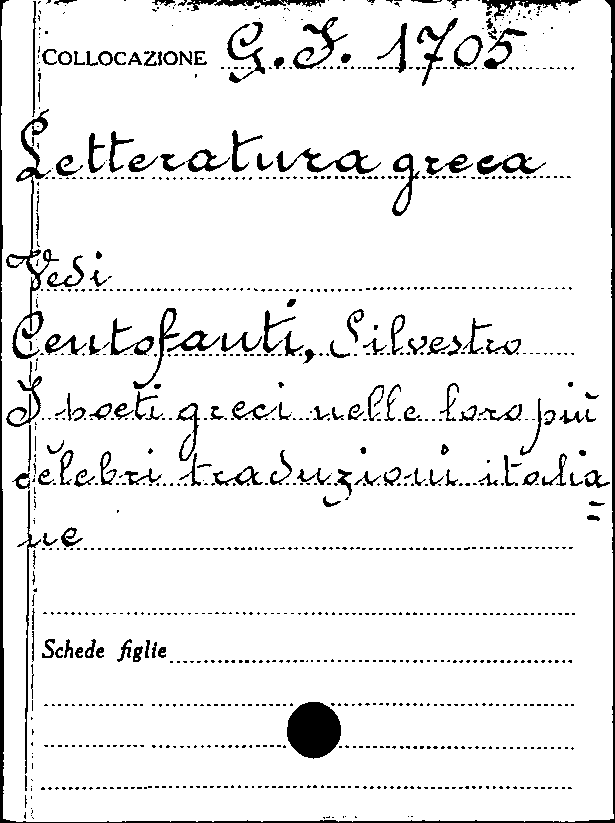 COLLOCAZIONE G. F. 1705
Letteratura greca
Vedi
Centofanti, Silvestro
I poeti greci nelle loro più
celebri traduzioni italia=
ne
Schede figlie